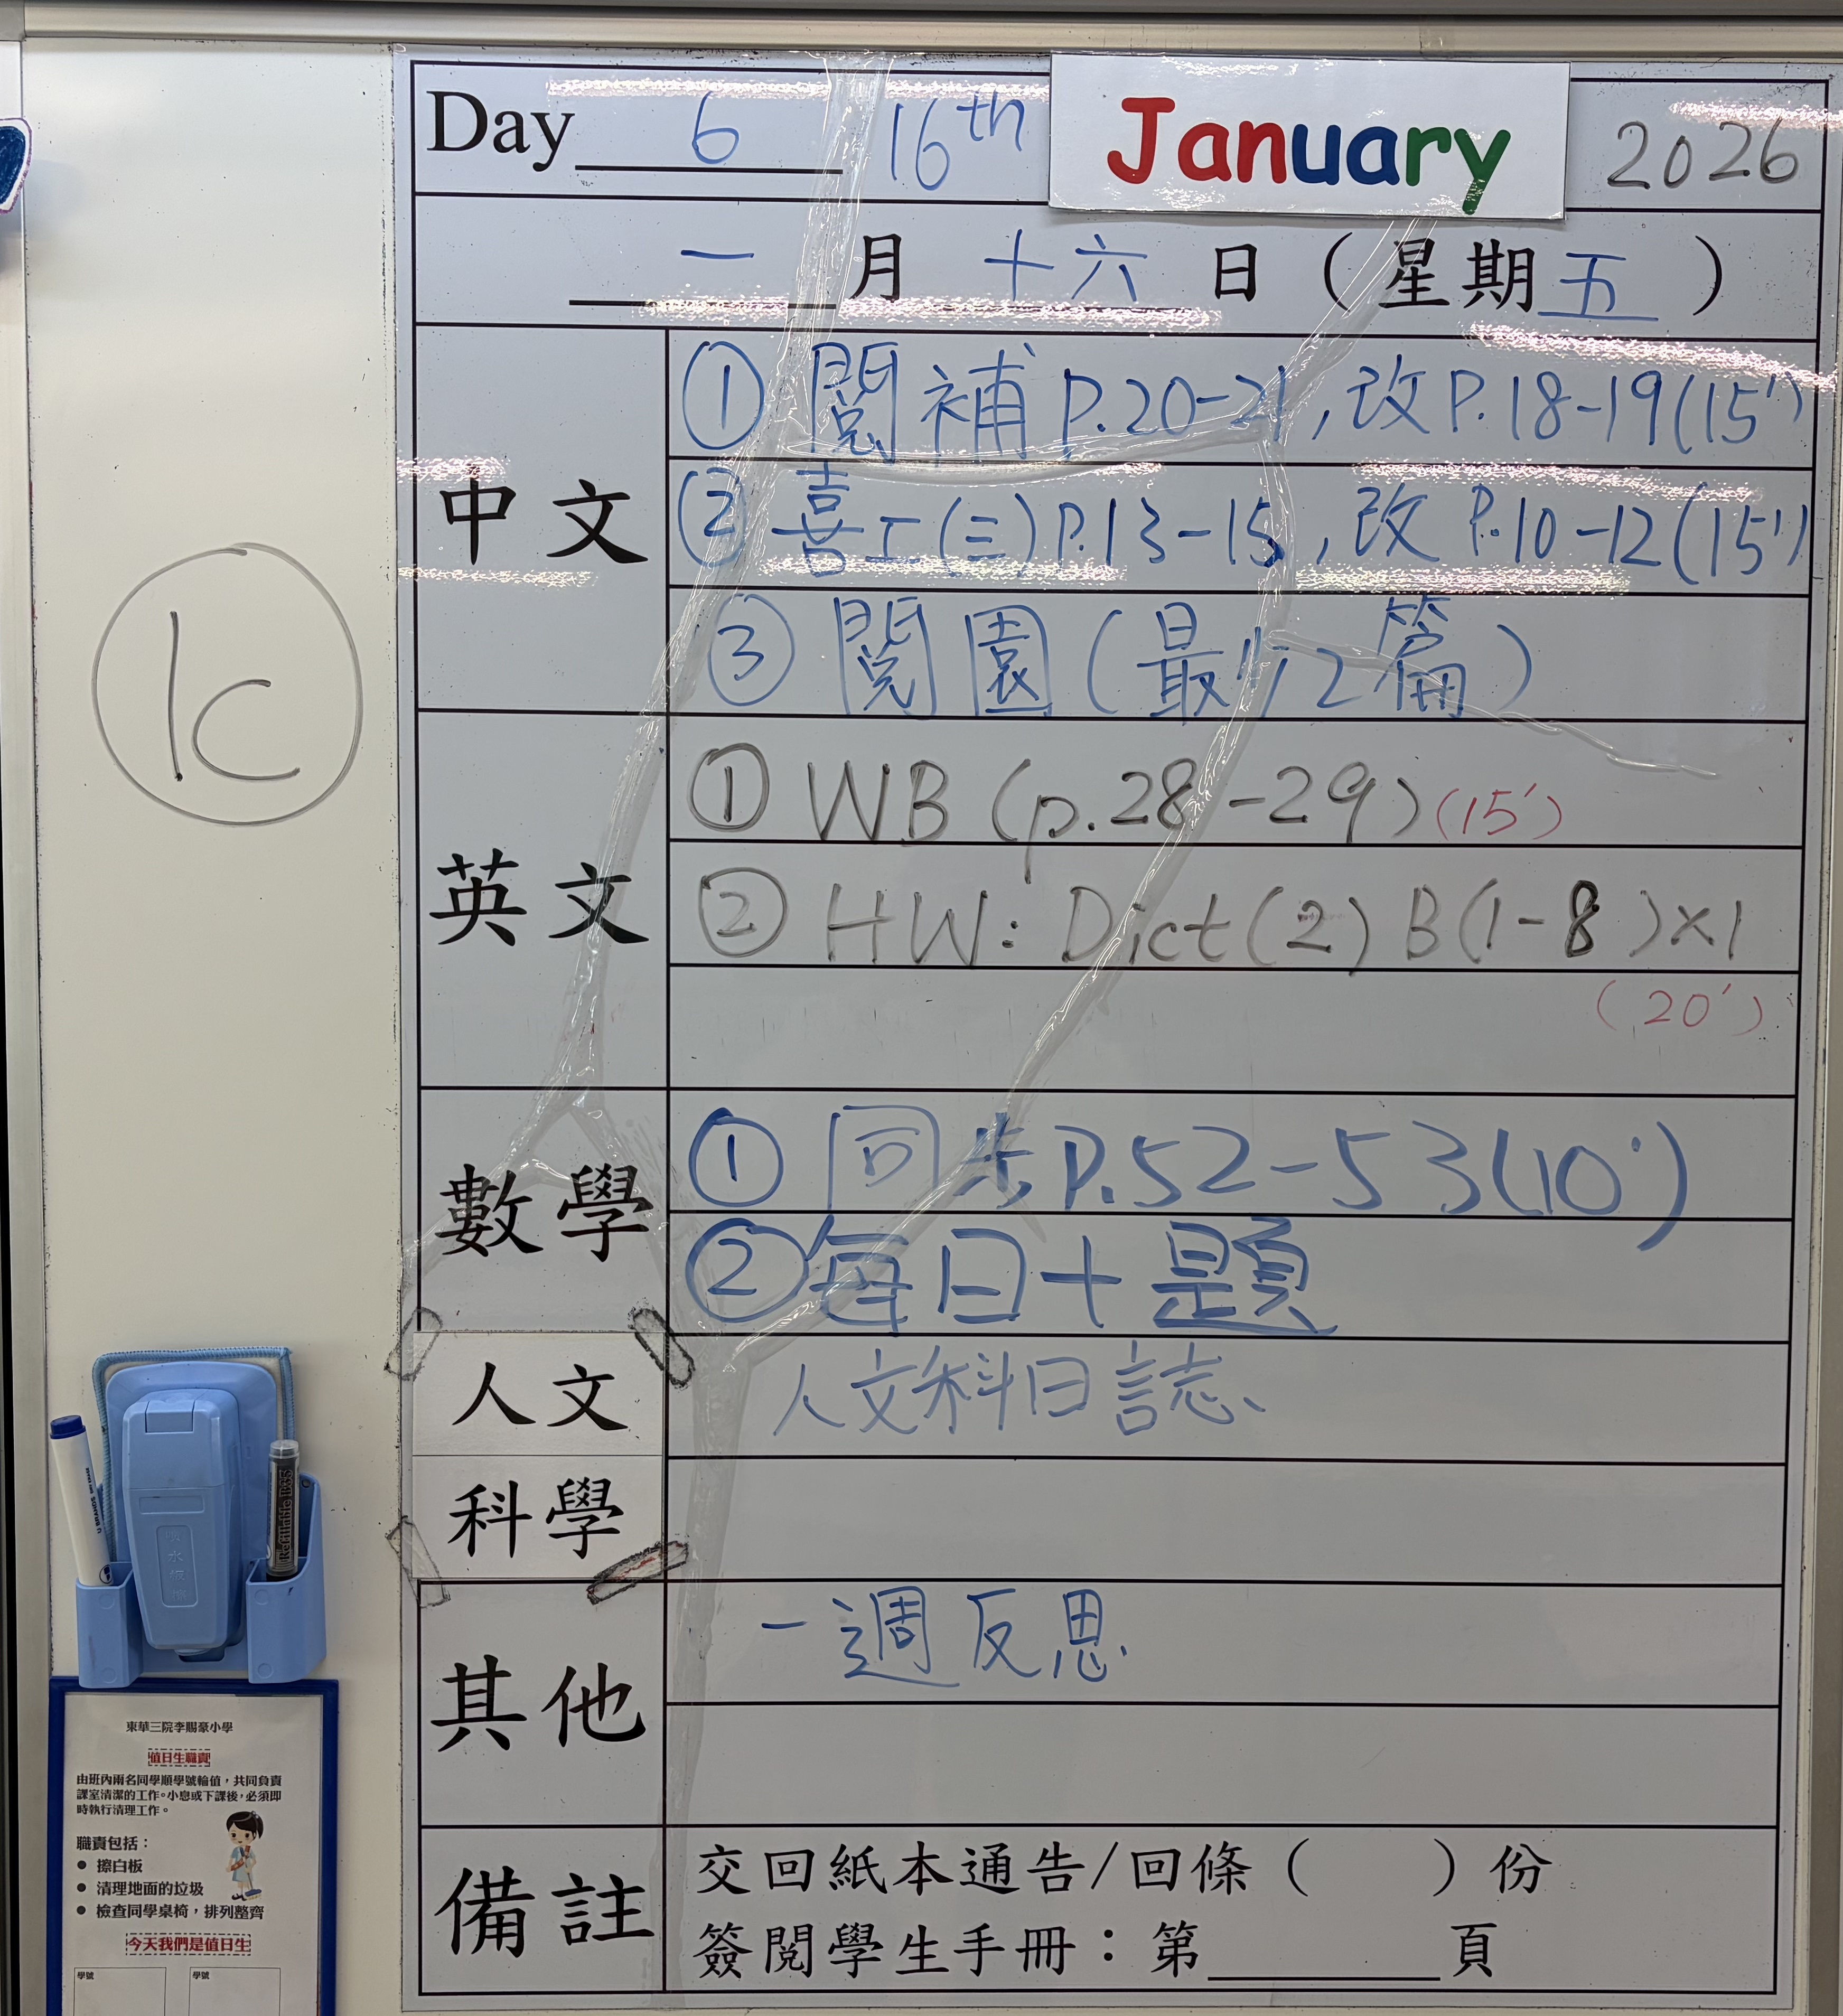 Day 6 16th January 2026
一月十六日（星期五）
中文
① 閱補 P.20-21, 改 P.18-19 (15')
② 喜工(三) P.13-15, 改 P.10-12 (15')
③ 閱園（最少2篇）
英文
① WB (p.28-29) (15')
② HW: Dict(2) B(1-8)×1
(20')
數學
① 同步 P.52-53 (10')
② 每日十題
人文
人文科日誌
科學
其他
一週反思
備註
交回紙本通告/回條（ ）份
簽閱學生手冊：第____頁
1C
Refillable
東華三院李賜豪小學
值日生職責
由班內兩名同學順學號輪值，共同負責
課室清潔的工作。小息或下課後，必須即
時執行清理工作。
職責包括：
● 擦白板
● 清理地面的垃圾
● 檢查同學桌椅，排列整齊
今天我們是值日生
學號 學號